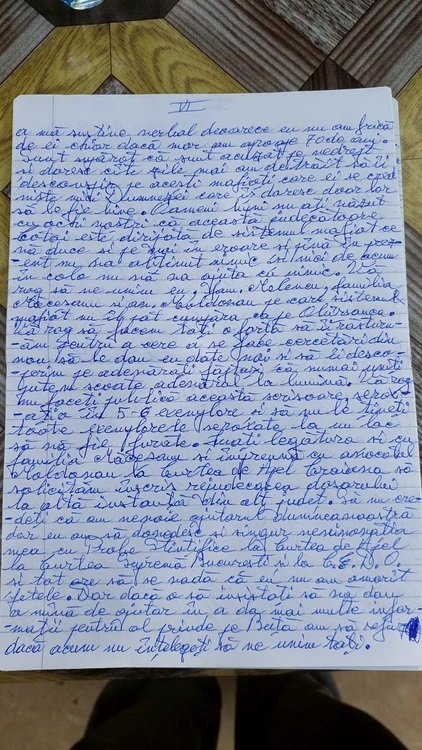 VI
a mă susține verbal deoarece eu nu am frică
de ei chiar dacă mor am aproape 70 de ani.
Sunt supărat că sunt acuzat pe nedrept
și doresc câte zile mai am de trăit să-i
descoperim pe acești mafioți care ei se cred
niște mici Dumnezei care își doresc doar lor
să le fie bine. Oameni buni nu ați văzut
cu ochii noștri că această judecătoare
Cotoi este dirijată de sistemul mafiot ce
să ducă și pe mai în eroare și până în prez-
-ent nu s-a obținut nimic și nici de acum
în colo nu să va ajuta cu nimic. Vă
rog să ne unim eu, Melencu, familia
Măceșanu și av. Moldovan pe care sistemul
mafiot nu îl pot cumpăra ca pe Olitrsanca.
Vă rog să facem toți o forță să îi răstur-
-ăm pentru a cere a se face cercetări din
nou să le dau eu date noi și să îi desco-
-perim pe adevărații făptași că numai uniți
putem scoate adevărul la lumină. Vă rog
nu faceți publică această scrisoare, xerox-
-ați-o în 5-6 exemplare și să nu le țineți
toate exemplarele separate la un loc
să nu fie furate. Luați legătura și cu
familia Măceșanu și împreună cu avocatul
Moldovan la Curtea de Apel Craiova să
solicităm înscris rejudecarea dosarului
la altă instanță din alt județ. Să nu cre-
-deți că am nevoie ajutorul dumneavoastră
dar eu am să dovedesc și singur nevinovăția
mea cu Probe Științifice la Curtea de Apel
la Curtea Supremă București și la C.E.D.O.
și tot are să se vadă că eu nu am omorât
fetele. Dar dacă o să insistați să nu dau
o mână de ajutor în a da mai multe infor-
-mații pentru al prinde pe Bată am să refuz
dacă acum nu înțelegeți să ne unim toți.